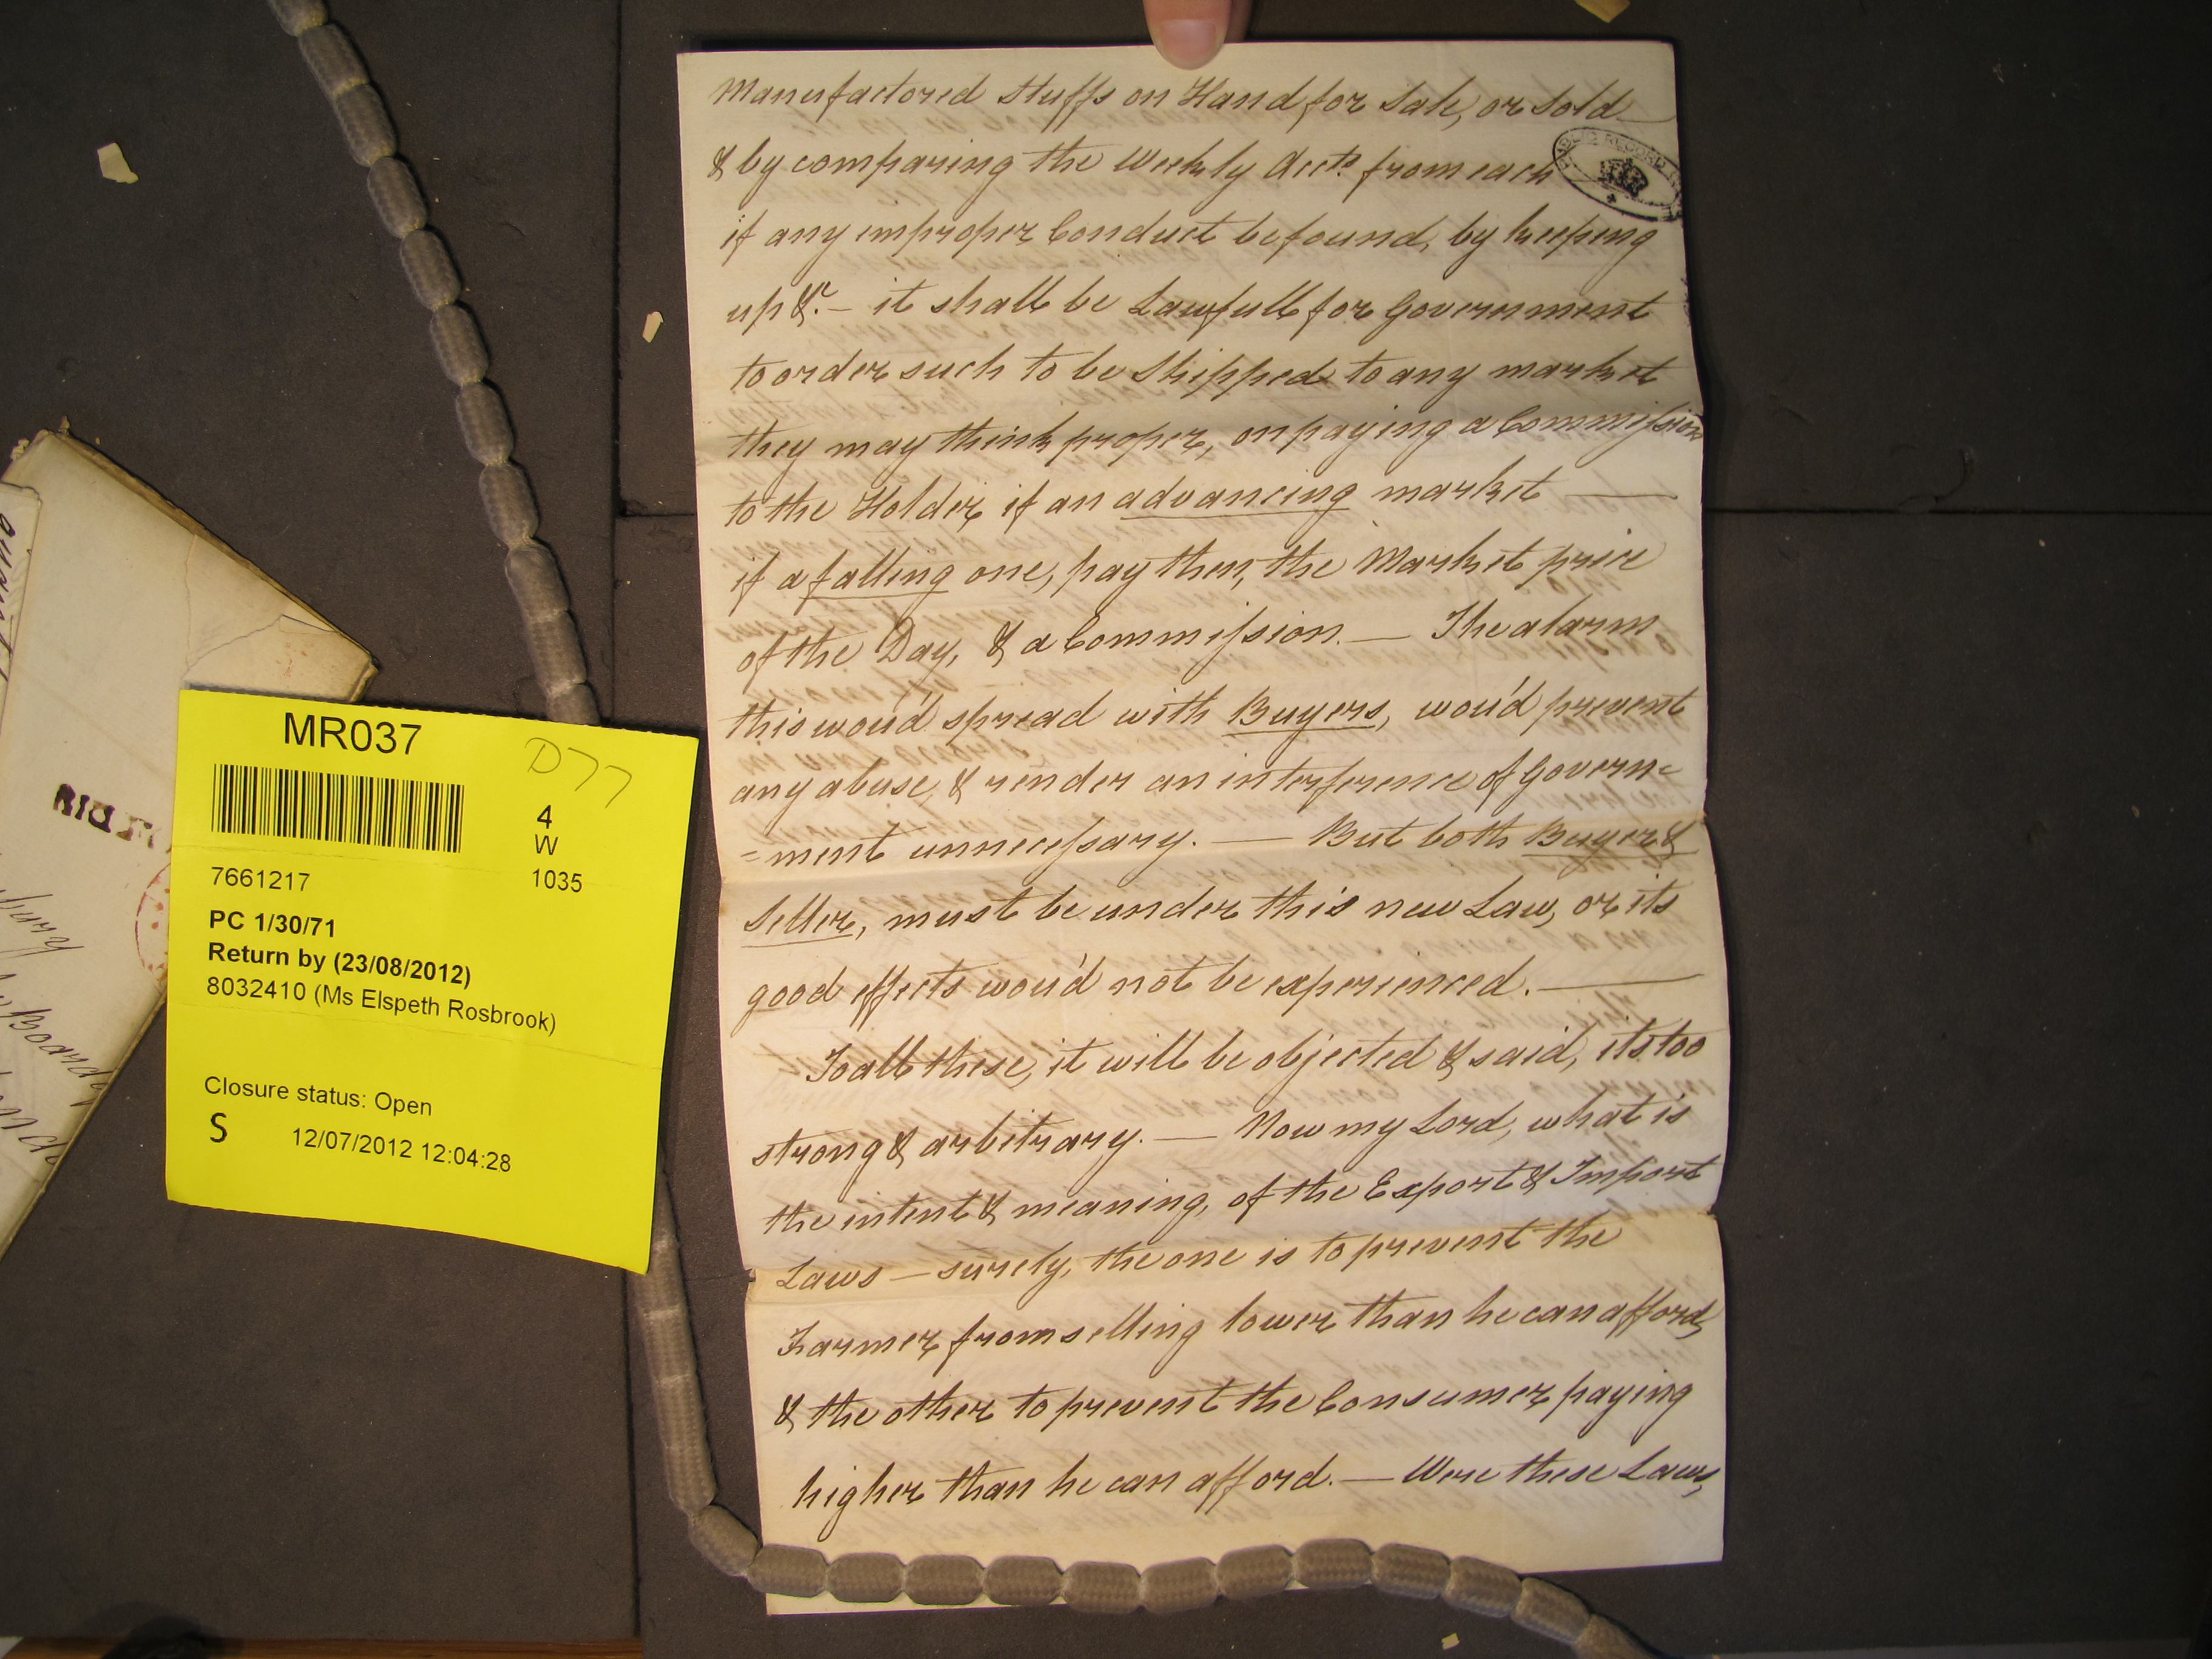 Manufactored Stuffs on Hand for Sale, or Sold
& by comparing the Weekly Accts. from each
if any improper Conduct be found, by keeping
up &c.- it shall be Lawfull for Government
to order such to be Shipped to any market
they may think proper, on paying a Commission
to the Holder if an advancing market —
if a falling one, pay them, the Market price
of the Day, & a Commission. — The alarm
this wou'd spread with Buyers, wou'd prevent
any abuse, & render an interference of Govern=
=ment unnecessary. — But both Buyer &
Seller, must be under this new Law, or its
good effects wou'd not be experienced. —
To all these, it will be objected & said, its too
strong & arbitrary. — Now my Lord, what is
the intent & meaning, of the Export & Import
Laws — surely, the one is to prevent the
Farmer from selling lower than he can afford,
& the other to prevent the Consumer paying
higher than he can afford. — Were these Laws,
PUBLIC RECORD
MR037
D77
4
W
1035
7661217
PC 1/30/71
Return by (23/08/2012)
8032410 (Ms Elspeth Rosbrook)
Closure status: Open
S 12/07/2012 12:04:28